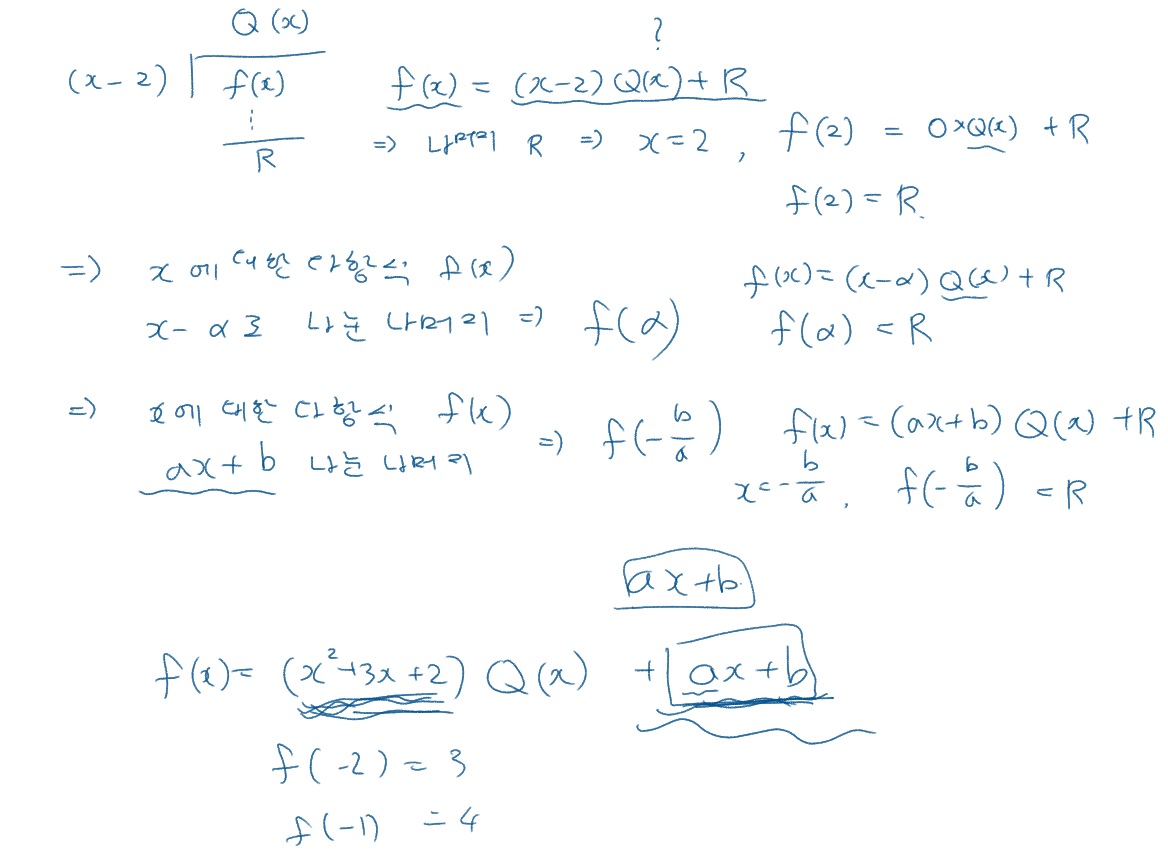 Q(x)
(x-2) f(x)
⋮
R
?
f(x) = (x-2) Q(x) + R
=> 나머지 R => x=2 , f(2) = 0×Q(x) + R
f(2) = R.
=> x에 대한 다항식 f(x)
x-α로 나눈 나머지 => f(α)
f(x) = (x-α) Q(x) + R
f(α) = R
=> x에 대한 다항식 f(x)
ax+b 나눈 나머지 => f(-b/a)
f(x) = (ax+b) Q(x) + R
x=-b/a , f(-b/a) = R
ax+b
f(x) = (x²+3x+2) Q(x) + ax+b
f(-2) = 3
f(-1) = 4